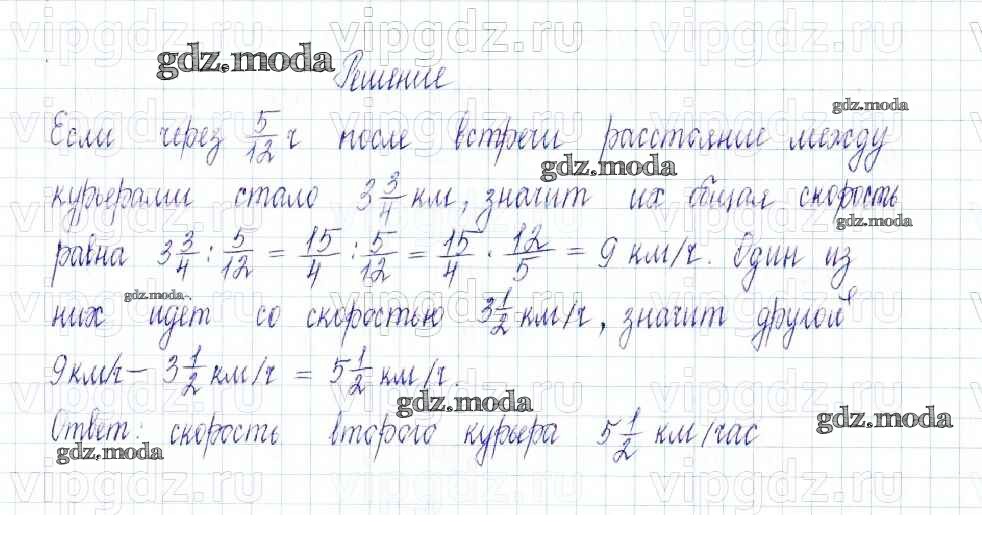 Решение
Если через 5/12 ч после встречи расстояние между
курьерами стало 3 3/4 км, значит их общая скорость
равна 3 3/4 : 5/12 = 15/4 : 5/12 = 15/4 · 12/5 = 9 км/ч. Один из
них идет со скоростью 3 1/2 км/ч, значит другой
9 км/ч – 3 1/2 км/ч = 5 1/2 км/ч.
Ответ: скорость второго курьера 5 1/2 км/час
gdz.moda
gdz.moda
gdz.moda
gdz.moda
gdz.moda
gdz.moda
gdz.moda
gdz.moda
vipgdz.ru